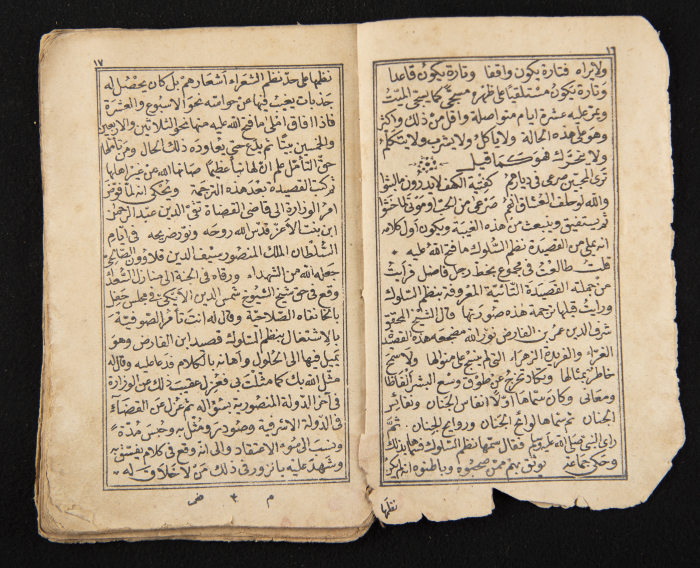 ١٦
ولا يراه فتارة يكون واقفا وتارة يكون قاعدا
وتارة يكون مستلقيا على ظهره مسجى كما يسجى الميت
ويمر عليه عشرة ايام متواصلة واقل من ذلك واكثر
وهو على هذه الحالة ولا ياكل ولا يشرب ولا يتكلم
ولا يتحرك فهو كما قيل
ترى المحبين صرعى في ديارهم كفتية الكهف لا يدرون ما لبثوا
والله لو حلف العشاق انهم صرعى من الحب او موتى لما حنثوا
ثم يستفيق وينبعث من هذه الغيبة ويكون أول كلامه
انه يملي من القصيدة نظم السلوك ما فتح الله عليه
قلت طالعت في مجموع بخط رجل فاضل فرايت
من جملته القصيدة التائية المعروفة بنظم السلوك
ورايت قبلها ترجمة هذه صورتها قال الشيخ المحقق
شرف الدين عمر بن الفارض نور الله مضجعه هذه القصيدة
الغراء والفريدة الزهراء التي لم ينسج على منوالها ولا سمح
خاطر بمثالها ويكاد تخرج عن طوق وسع البشر الفاظا
ومعاني وكان سماها اولا انفاس الجنان ونفائس
الجنان ثم سماها لوائح الجنان وروائح الجنان ثم
راى النبي صلى الله عليه وسلم فقال سمها نظم السلوك فسماها بذلك
وحكى جماعة يوثق بهم ممن صحبوه وباطنوه انه لم يكن
نظمها
١٧
نظمها على حد نظم الشعراء أشعارهم بل كان يحصل له
جذبات يغيب فيها عن حواسه نحو الاسبوع والعشرة
فاذا افاق املى ما فتح الله عليه منها نحو الثلاثين والاربعين
والخمسين بيتا ثم يدع حتى يعاوده ذلك الحال ومن تأملها
حق التأمل علم ان لها نبأ عظيما صانها الله عن غير اهلها
ثم كتبت القصيدة بعد هذه الترجمة وحكى انه لما فوض
امر الوزارة الى قاضي القضاة تقي الدين عبد الرحمن
ابن بنت الاعز قدس الله روحه ونور ضريحه في ايام
السلطان الملك المنصور سيف الدين قلاوون الصالحي
جعله الله من الشهداء ورقاه في الجنة الى منازل السعداء
وقع في حق شيخ الشيوخ شمس الدين الايكي في مجلس حفل
بالخانقاه الصلاحية وقال له انت تأمر الصوفية
بالاشتغال بنظم السلوك قصيد ابن الفارض وهو
يميل فيها الى الحلول واهانه بالكلام فدعا عليه وقال له
مثل الله بك كما مثلت بي فعزل عقيب ذلك من الوزارة
في آخر الدولة المنصورية بسؤاله ثم عزل عن القضاء
في الدولة الاشرفية وصودر ومثل به وحبس مدة
ونسب الى سوء الاعتقاد والى انه وقع في كلام بفسق
وشهد عليه بالزور في ذلك من لا خلاق له
م ٣ ض